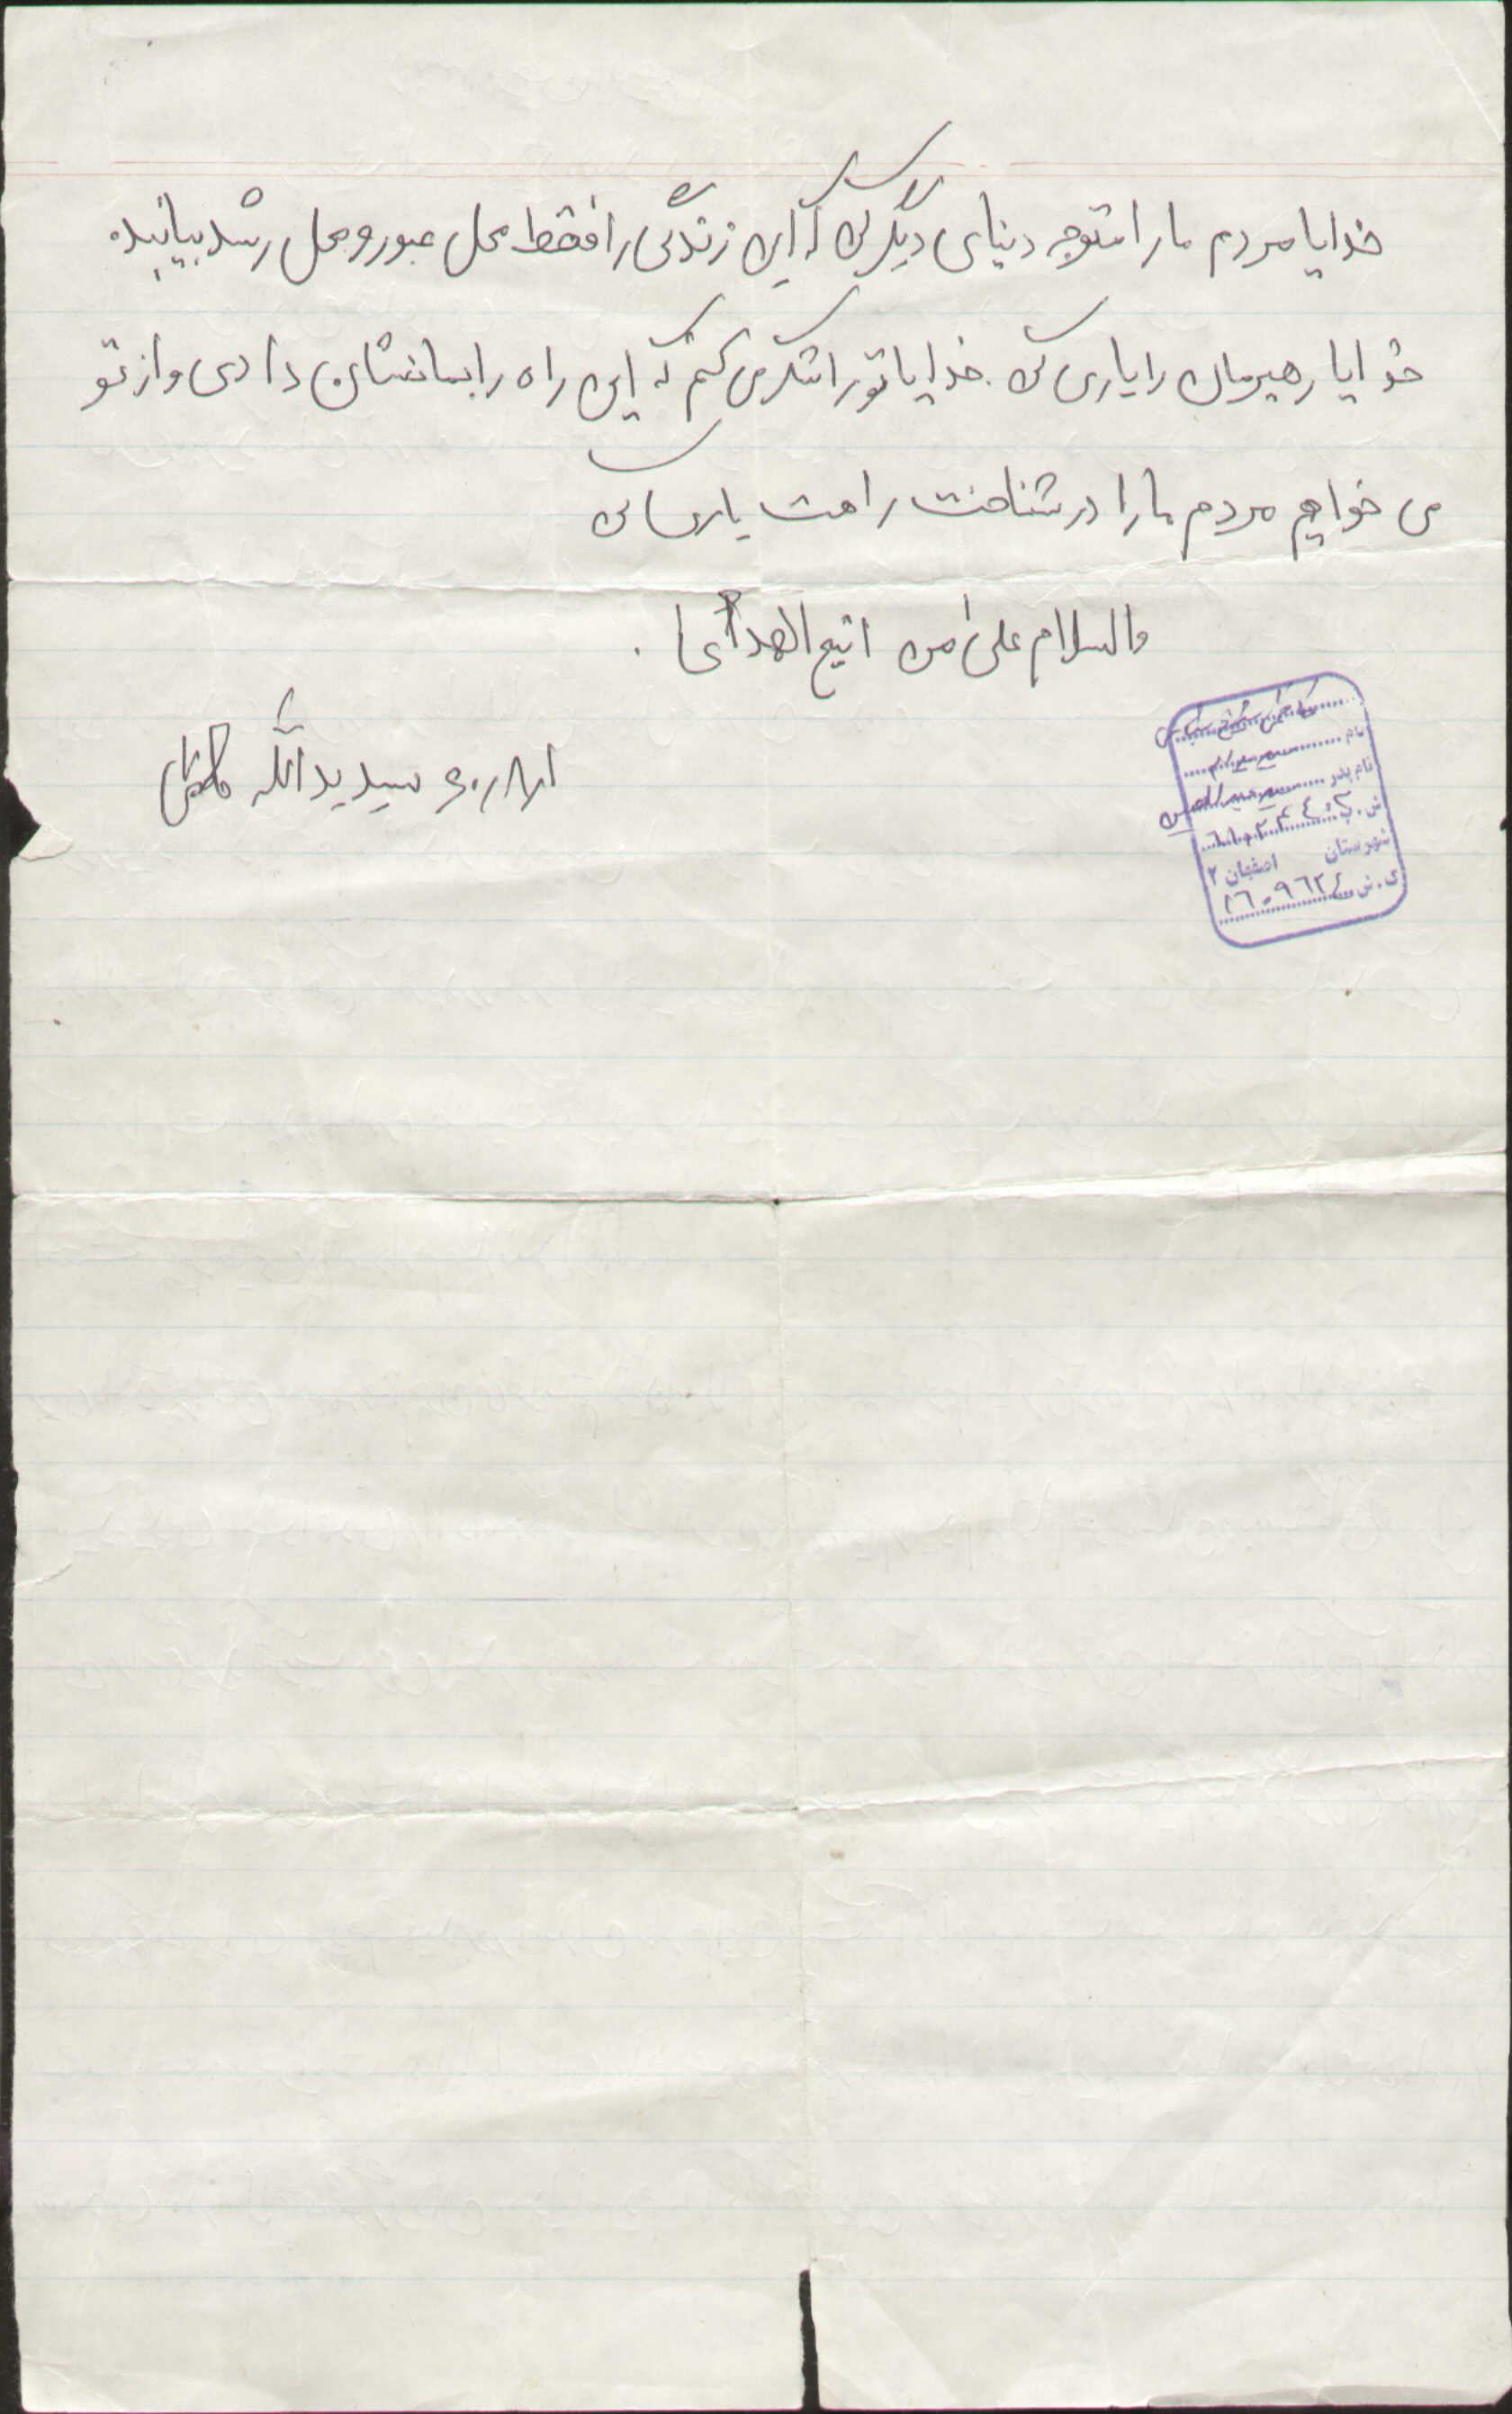 خدایا مردم ما را متوجه دنیای دیگر کن که این زندگی را فقط محل عبور و محل رشد بیابند
خدایا رهبرمان را یاری کن. خدایا تو را شکر می کنم که این راه را بما نشان دادی و از تو
می خواهم مردم ما را در شناخت راهت یاری کن
والسلام علی من اتبع الهدی .
سید یدالله
نام
نام پدر
ش . پ
شهرستان اصفهان ۲
ک . ش ۱۶۰۹۶۲۴